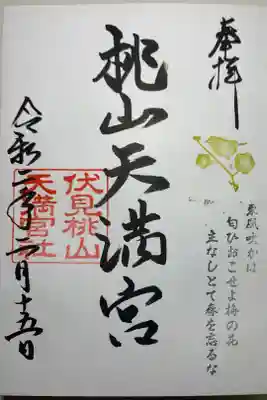 奉拝
東風吹かは
匂ひおこせよ梅の花
主なしとて春を忘るな
桃山天満宮
伏見桃山
天満宮社
令和二年二月十五日